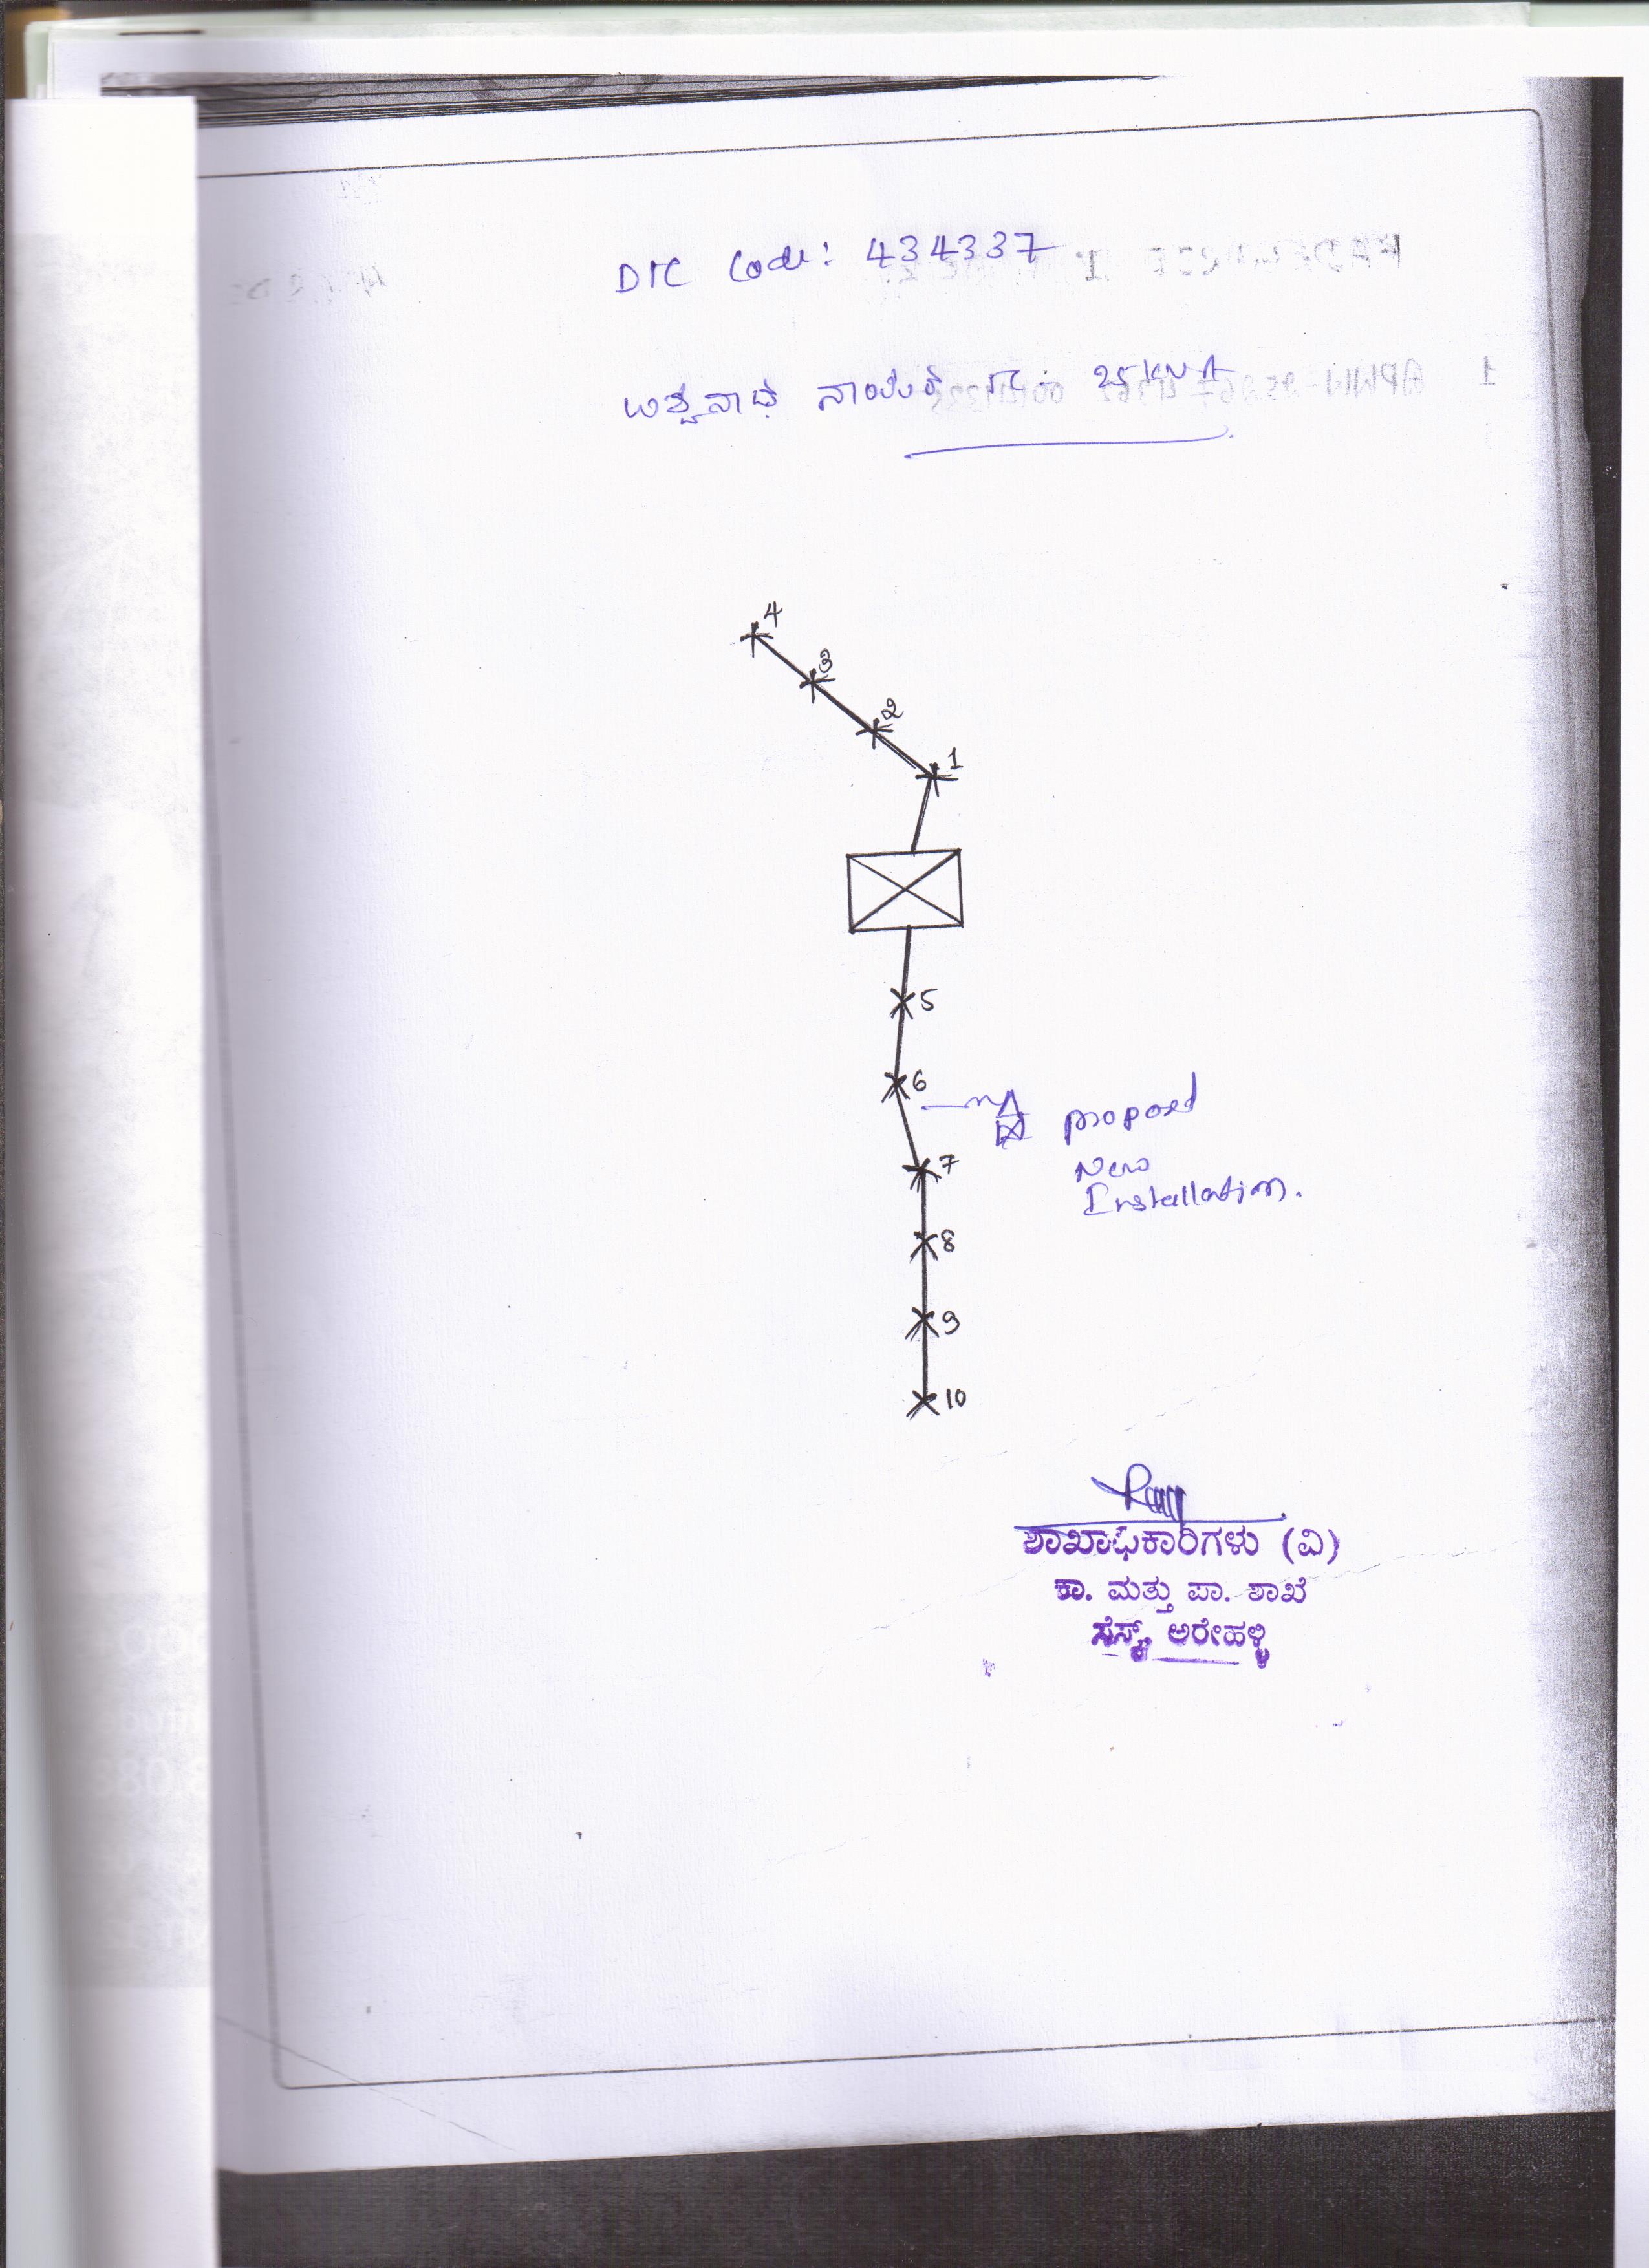 DTC Code: 434337
ಅಶ್ವನಾಥ TC: 25KVA
4
3
2
1
5
6
proposed
7
New
Installation.
8
9
10
ಶಾಖಾಧಿಕಾರಿಗಳು (ವಿ)
ಕಾ. ಮತ್ತು ಪಾ. ಶಾಖೆ
ಸೆಸ್ಕ್, ಅರೇಹಳ್ಳಿ